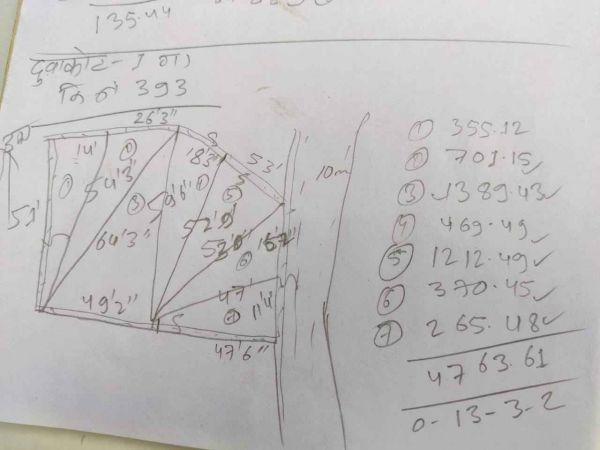 135.44
दुवाकोट - 1
कि नं 393
26'3"
5
14'
1
1
54'3"
18'3"
53'
5
10m
51'
3
59'6"
5
64'3"
52'9"
6
49'2"
47'
11'4"
5
7
47'6"
① 355.12
② 701.15
③ 1389.43
④ 469.49
⑤ 1212.49
⑥ 370.45
⑦ 265.48
4763.61
0-13-3-2